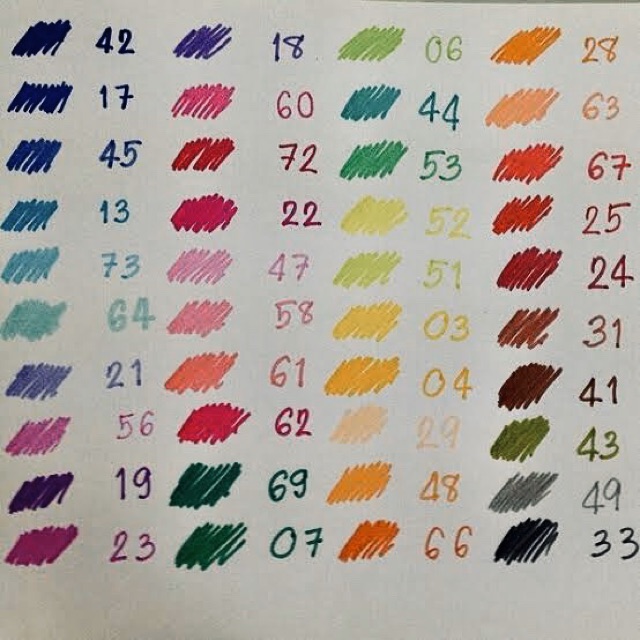 42 18 06 28
17 60 44 63
45 72 53 67
13 22 52 25
73 47 51 24
64 58 03 31
21 61 04 41
56 62 29 43
19 69 48 49
23 07 66 33